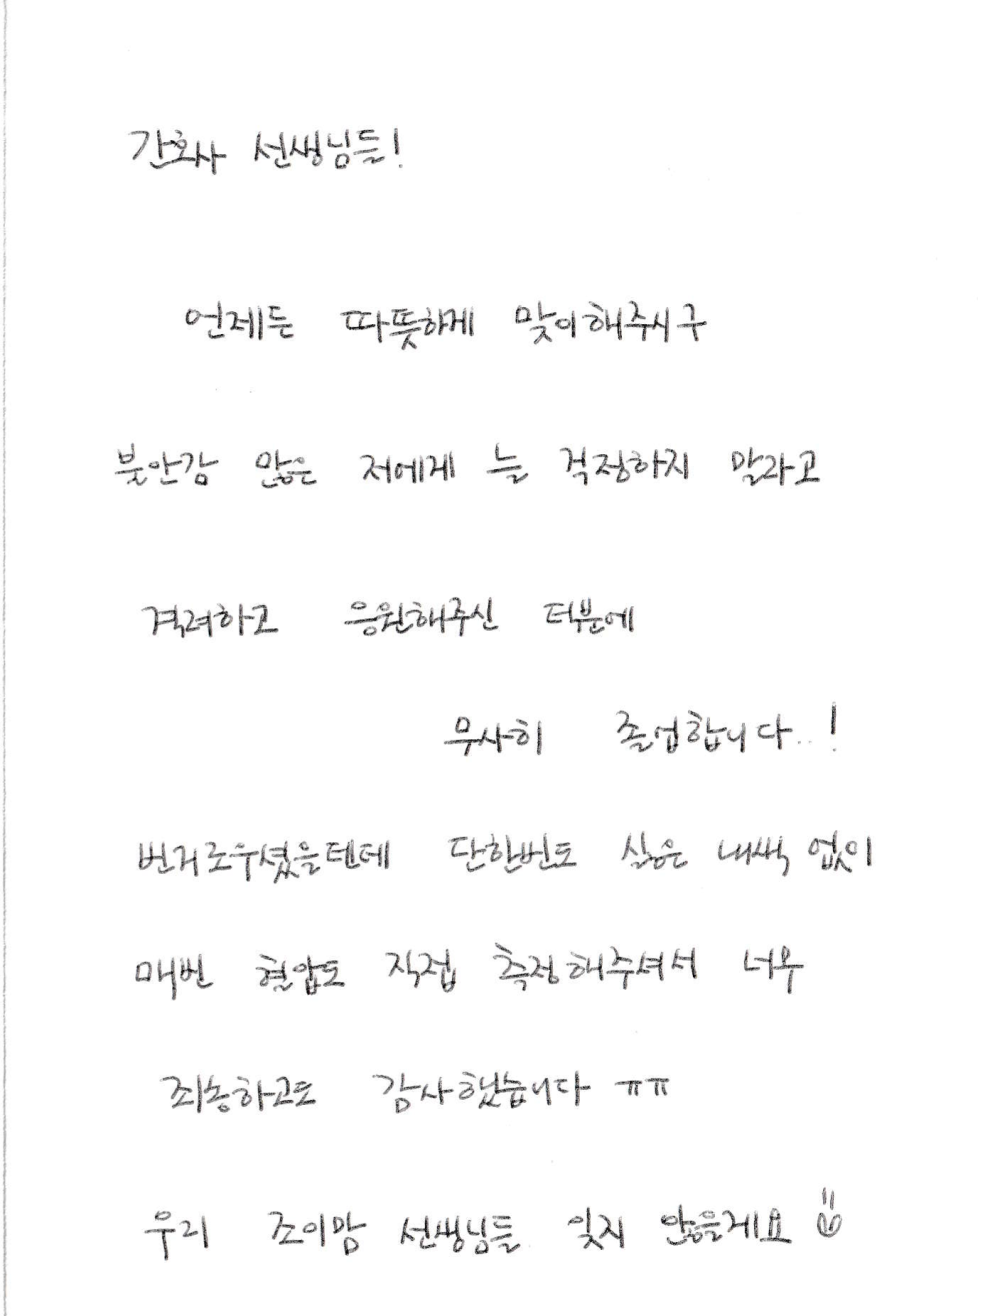 간호사 선생님들!
언제든 따뜻하게 맞이해주시구
불안감 많은 저에게 늘 걱정하지 말라고
격려하고 응원해주신 덕분에
무사히 졸업합니다..!
번거로우셨을텐데 단한번도 싫은 내색 없이
매번 혈압도 직접 측정해주셔서 너무
죄송하고도 감사했습니다 ㅠㅠ
우리 조이맘 선생님들 잊지 않을게요